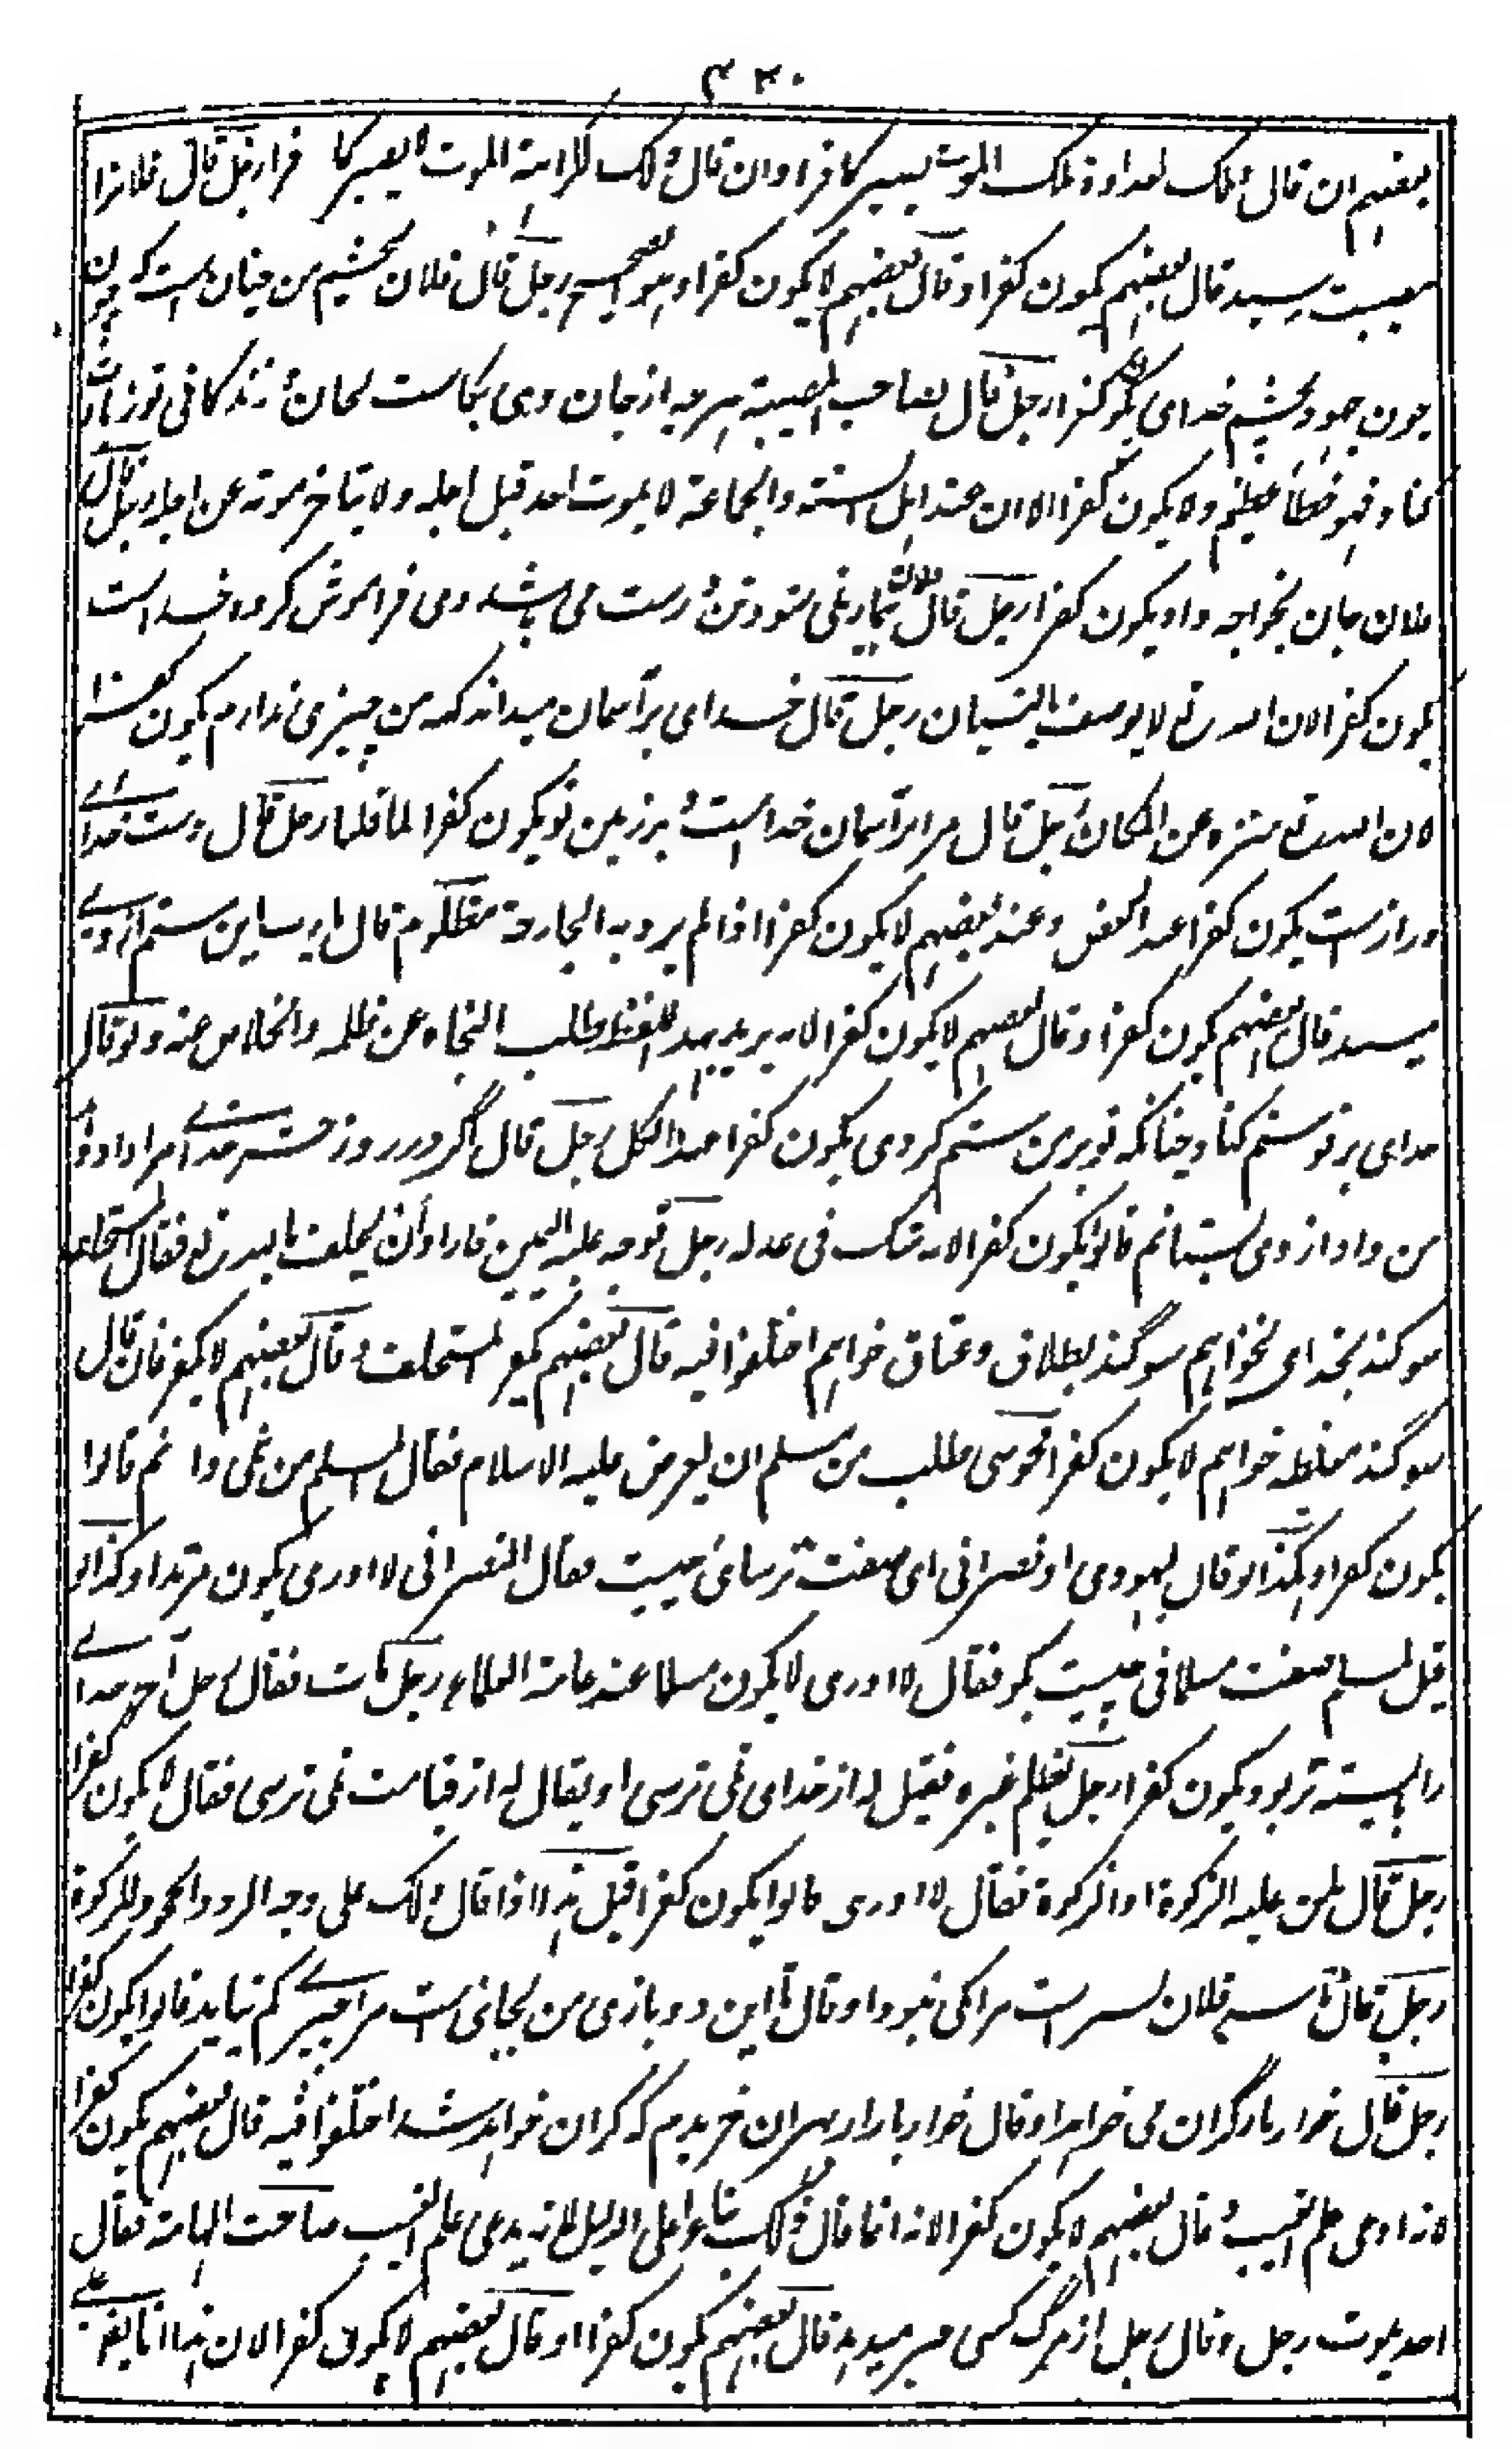 ۴۲۰
بعضهم ان قال ذلك لعداوة ملك الموت يصير كافرا وان قال ذلك لكراهة الموت لا يصير كافرا رجل قال فلانرا
مصيبت رسيد قال بعضهم يكون كفرا وقال بعضهم لا يكون كفرا وهو الصحيح رجل قال فلان بچشم من چنان است كه
چون جهود بچشم خدای يكون كفرا رجل قال لصاحب المصيبة هرچه از جان وی بكاست بجان زندكانی تو زيادت
كناد فهو خطأ عظيم ولا يكون كفرا الا ان عند اهل السنة والجماعة لا يموت احد قبل اجله ولا يتأخر موته عن اجله رجل قال
فلان جان بخواجه داد يكون كفرا رجل قال فلان بيمار نمی شود وتن درست می باشد وی فراموش كرده خداست
يكون كفرا لان الله تع لا يوصف بالنسيان رجل قال خدای بر آسمان ميداند كه من چيزی ندارم يكون كفرا
لان الله تع منزه عن المكان رجل قال مرا بر آسمان خداست و بر زمين تو يكون كفرا لما قلنا رجل قال دست خدای
دراز ست يكون كفرا عند البعض وعند بعضهم لا يكون كفرا اذا لم يرد به الجارحة مظلوم قال اين ستم از وی
ميسند قال بعضهم يكون كفرا وقال بعضهم لا يكون كفرا لانه يريد بهذا اللفظ طلب النجاة عن ظلمه والخلاص عنه ولو قال
خدای بر تو ستم كناد چنانكه تو بر من ستم كردی يكون كفرا عند الكل رجل قال اگر در روز حشر خدای مرا داد
من داد از وی بستانم قالوا يكون كفرا لانه شك فی عدله رجل توجه عليه اليمين فاراد ان يحلف بالله تع فقال المستحلف
سوكند بخدای نخواهيم سوگند بطلاق وعتاق خواهم اختلفوا فيه قال بعضهم يكفر المستحلف وقال بعضهم لا يكفر فان قال
سوگند مغلظه خواهم لا يكون كفرا مجوسی طلب من مسلم ان يعرض عليه الاسلام فقال المسلم من نمی دانم قالوا
يكون كفرا وهكذا لو قال ليهودی او نصرانی ای صفت ترسائی چيست فقال النصرانی لا ادری يكون مرتدا وكذا لو
قيل لمسلم صفت مسلمانی چيست بگو فقال لا ادری لا يكون مسلما عند عامة العلماء رجل مات فقال رجل آخر خدای
را بايسته تر بود يكون كفرا رجل يظلم غيره فقيل له از خدای نمی ترسی او يقال له از قيامت نمی ترسی فقال لا يكون كفرا
رجل قال لمن عليه الزكوة اد الزكوة فقال لا ادری قالوا يكون كفرا قيل هذا اذا قال ذلك علی وجه الرد والجحود للزكوة
رجل قال تا سه فلان بسر است مرا كی نبود او قال تا اين دو بازی من بجائی است مرا چيزی كم نيايد قالوا يكون كفرا
رجل قال خواربار گران می خواهد او قال خواربار ارسران خريدم كه گران خواهد شد اختلفوا فيه قال بعضهم يكون كفرا
لانه ادعی علم الغيب وقال بعضهم لا يكون كفرا لانه انما قال ذلك بناء علی الدليل لا انه يدعی علم الغيب صاحت الهامة فقال
احد يموت رجل وقال رجل از مرگ كسی خبر ميدهد قال بعضهم يكون كفرا وقال بعضهم لا يكون كفرا لان هذا انما يقوله علی